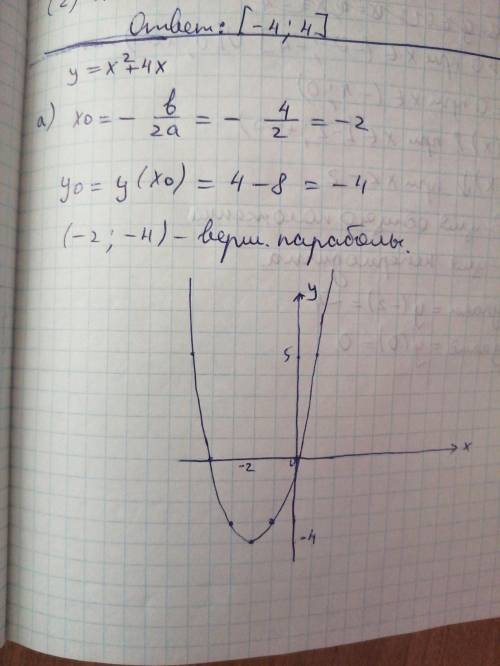 (2)
Ответ: [-4; 4]
y = x² + 4x
а) x₀ = - в/2a = - 4/2 = -2
y₀ = y(x₀) = 4 - 8 = -4
(-2; -4) - верш. параболы.
y
5
-2 0 x
-4